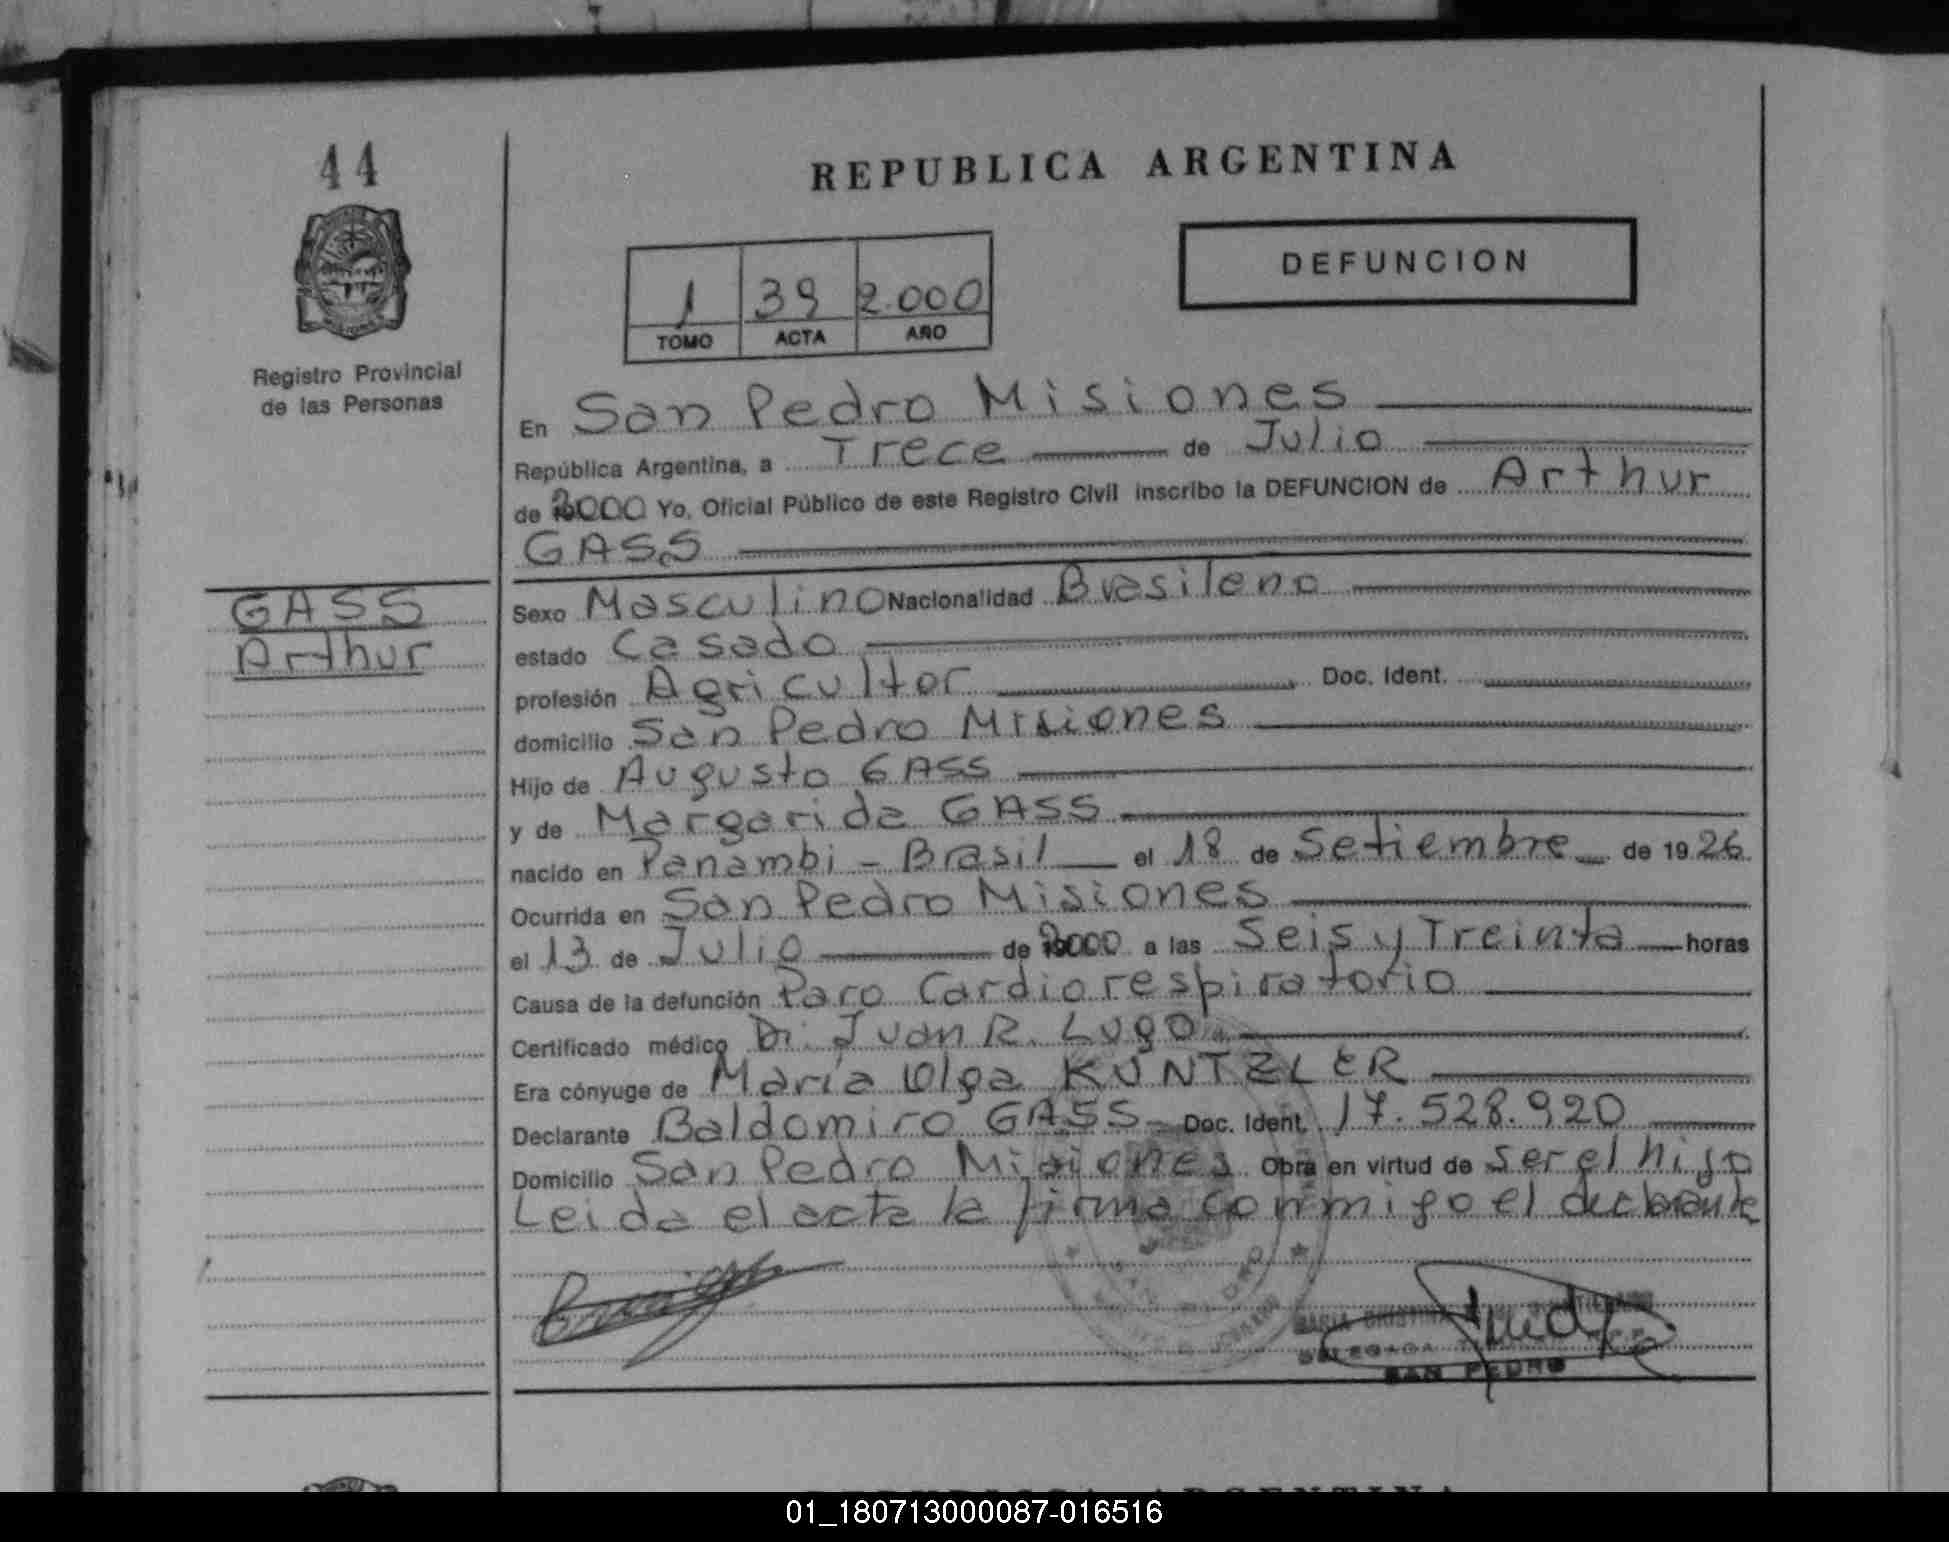 44
REPUBLICA ARGENTINA
DEFUNCION
1 39 2.000
TOMO ACTA AÑO
Registro Provincial
de las Personas
En San Pedro Misiones
República Argentina, a Trece de Julio
de 2000 Yo, Oficial Público de este Registro Civil inscribo la DEFUNCION de Arthur
GASS
GASS
Arthur
Sexo Masculino Nacionalidad Brasileno
estado Casado
profesión Agricultor Doc. Ident.
domicilio San Pedro Misiones
Hijo de Augusto GASS
y de Margarida GASS
nacido en Panambi - Brasil el 18 de Setiembre de 1926
Ocurrida en San Pedro Misiones
el 13 de Julio de 2000 a las Seis y Treinta horas
Causa de la defunción Paro Cardiorespiratorio
Certificado médico Dr. Juan R. Lugo
Era cónyuge de María Olga KUNTZLER
Declarante Baldomiro GASS Doc. Ident. 17.528.920
Domicilio San Pedro Misiones Obra en virtud de ser el hijo
Leida el acta la firma conmigo el declarante
MARIA CRISTINA
DELEGADA
SAN PEDRO
REPUBLICA ARGENTINA
01_180713000087-016516